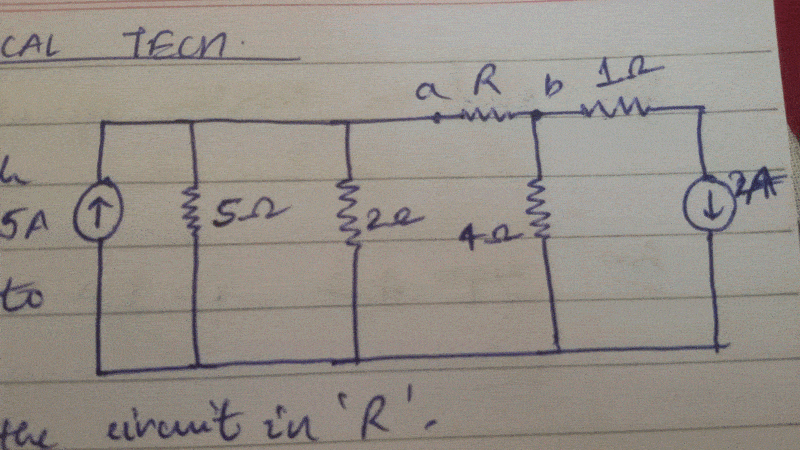 CAL TECH.
a R b 1Ω
5A 5Ω 2Ω 4Ω 2A
to
the circuit in 'R'.